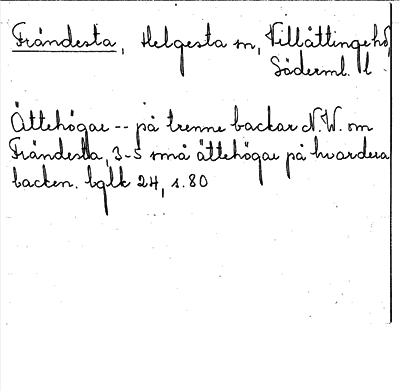 Frändesta, Helgesta sn, Villåttinge hd
Söderml. l
Ättehögar -- på trenne backar N.W. om
Frändesta, 3-5 små ättehögar på hvardera
backen. bglk 24, s.80